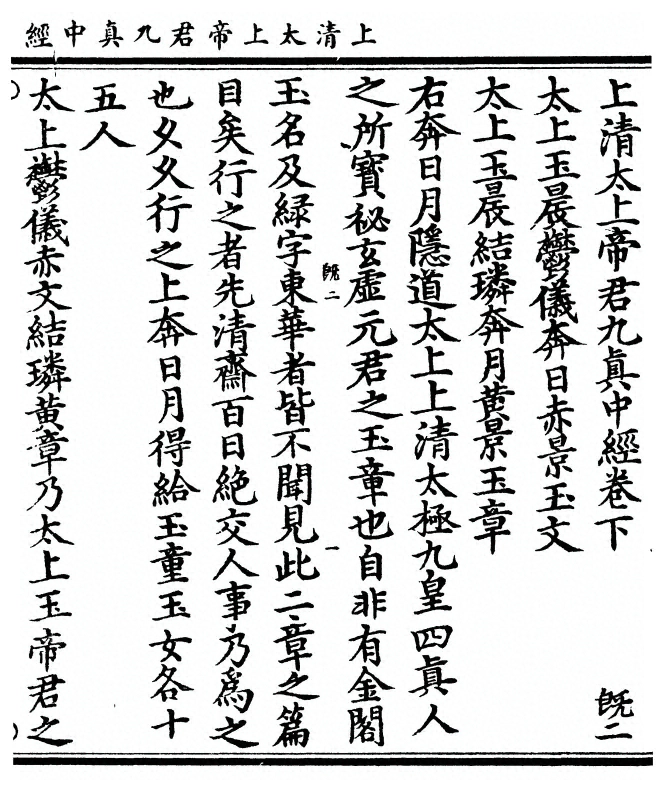 上清太上帝君九真中經
上清太上帝君九眞中經卷下 既二
太上玉晨鬱儀奔日赤景玉文
太上玉晨結璘奔月黄景玉章
右奔日月隱道太上上清太極九皇四眞人
之所寳秘玄虛元君之玉章也自非有金閣
既二 一
玉名及緑字東華者皆不聞見此二章之篇
目矣行之者先清齋百日絶交人事乃爲之
也久久行之上奔日月得給玉童玉女各十
五人
太上鬱儀赤文結璘黄章乃太上玉帝君之